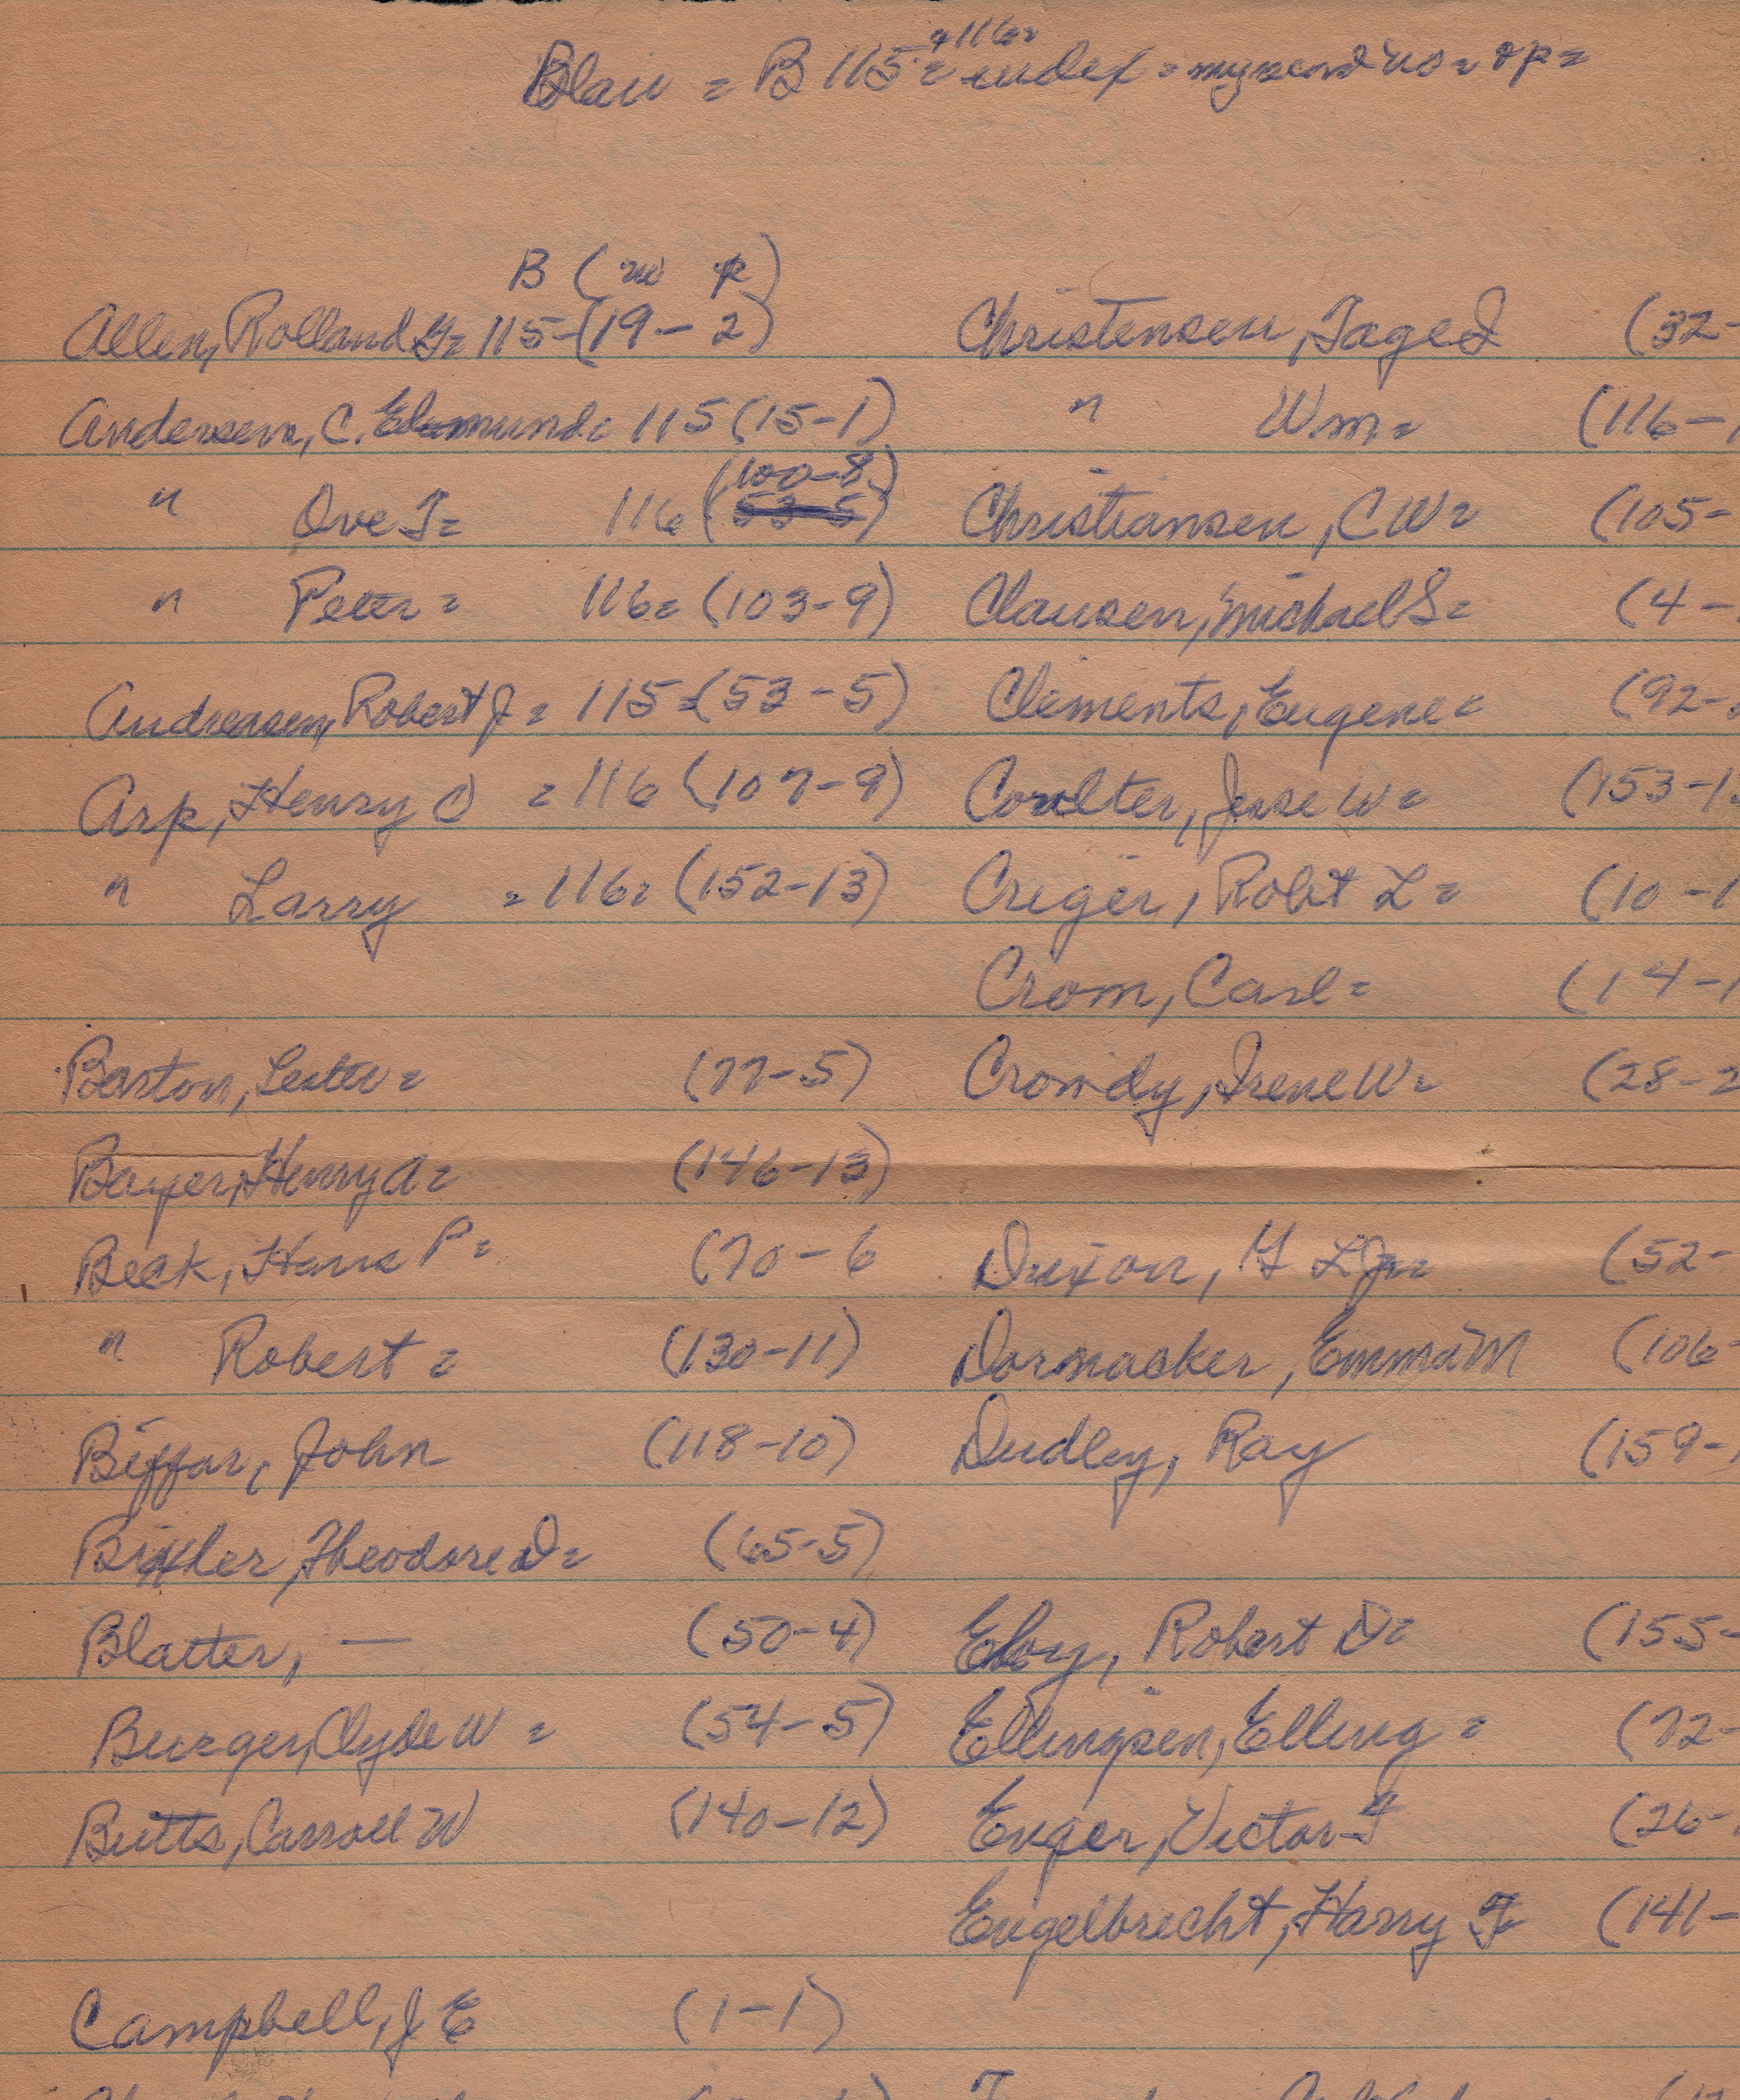 +116=
Blair = B 115 = index = my record no = & p =
B ( no p )
Allen, Rolland G= 115-(19-2)
Andersen, C. Edmund= 115 (15-1)
" Ove T= 116 (100-8)
53-5
" Peter= 116= (103-9)
Andreasen, Robert J= 115=(53-5)
Arp, Henry O =116 (107-9)
" Larry =116= (152-13)
Barton, Lester= (77-5)
Bayer, Henry A= (146-13)
Beck, Hans P= (70-6
" Robert= (130-11)
Biffar, John (118-10)
Bixler, Theodore D= (65-5)
Blatter, — (50-4)
Burger, Clyde W= (54-5)
Butts, Carroll W (140-12)
Campbell, J E (1-1)
Christensen, Tage J (32-
" Wm= (116-1
Christiansen, C W= (105-
Clausen, Michael S= (4-
Clements, Eugene= (92-
Coulter, Jesse W= (153-1
Creger, Robt L= (10-1
Crom, Carl= (14-1
Crowdy, Irene W= (28-2
Dixon, G L Jr= (52-
Dormacker, Emma M (106-
Dudley, Ray (159-1
Eby, Robert D= (155-
Ellingsen, Elling= (72-
Enger, Victor F (26-
Engelbrecht, Harry F (141-